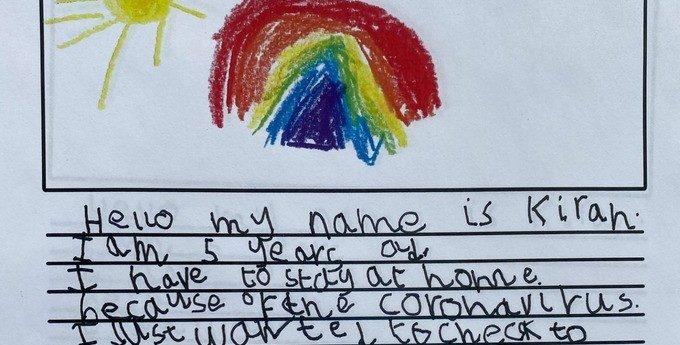 Hello my name is Kiran.
I am 5 years old.
I have to stay at home.
because of the coronavirus.
I just wanted to check to